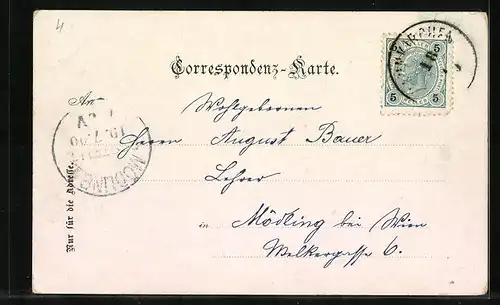 4
5 5
Correspondenz-Karte.
An
Wohlgebornen
Herrn August Bauer
Lehrer
in Mödling bei Wien
Welkergasse 6.
Nur für die Adresse.
MÖDLING